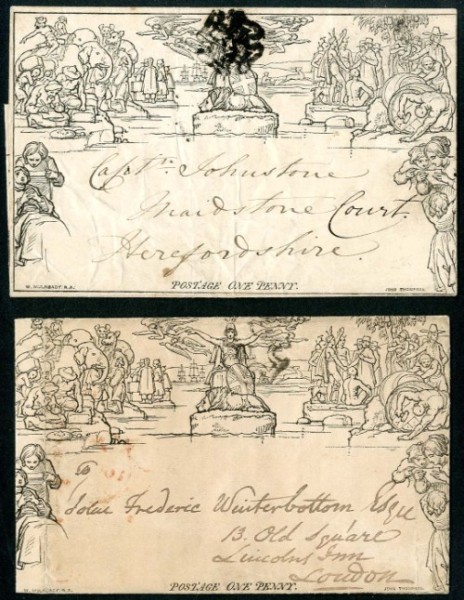 Captn. Johnstone
Maidstone Court.
Herefordshire.
POSTAGE ONE PENNY.
W. MULREADY, R.A.
JOHN THOMPSON
To
John Frederic Winterbottom Esqre
13. Old Square
Lincolns Inn
London
POSTAGE ONE PENNY.
W. MULREADY, R.A.
JOHN THOMPSON